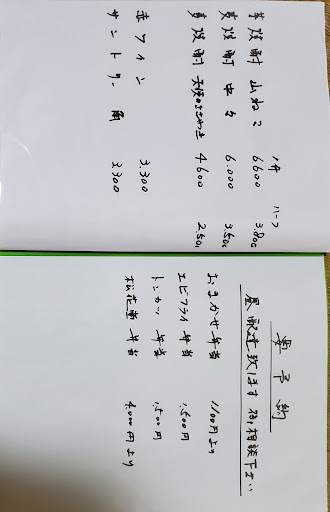 一升 ハーフ
芋焼酎 山ねこ 6.600 3.800
麦焼酎 中々 6.000 3.500
麦焼酎 天使のささやき 4.600 2.500
赤ワイン 3.300
サントリー 角 3.300
要予約
昼 配達致します 御相談下さい
おまかせ弁当 1100円より
エビフライ弁当 1,500円
トンカツ 弁当 1,500円
松花堂 弁当 4,000円より